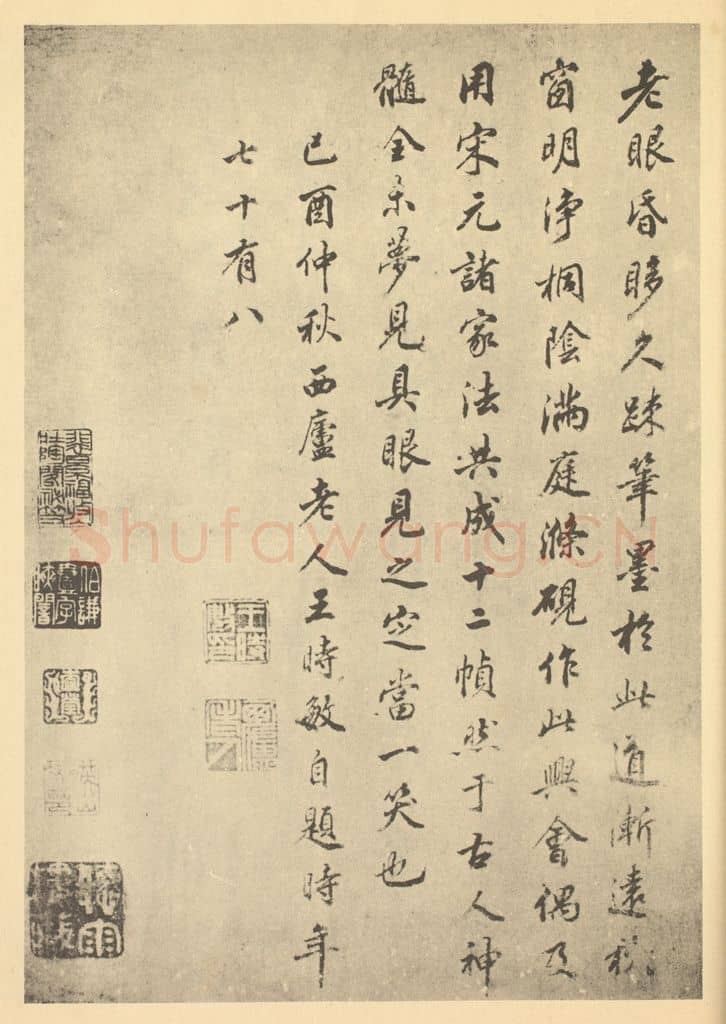 老眼昏眵久踈筆墨於此道漸遠秋
窗明淨桐陰滿庭滌硯作此興會偶及
用宋元諸家法共成十二幀然于古人神
髓全未夢見具眼見之定當一笑也
己酉仲秋西廬老人王時敏自題時年
七十有八
王時敏印
西廬老人
Shufawang.CN